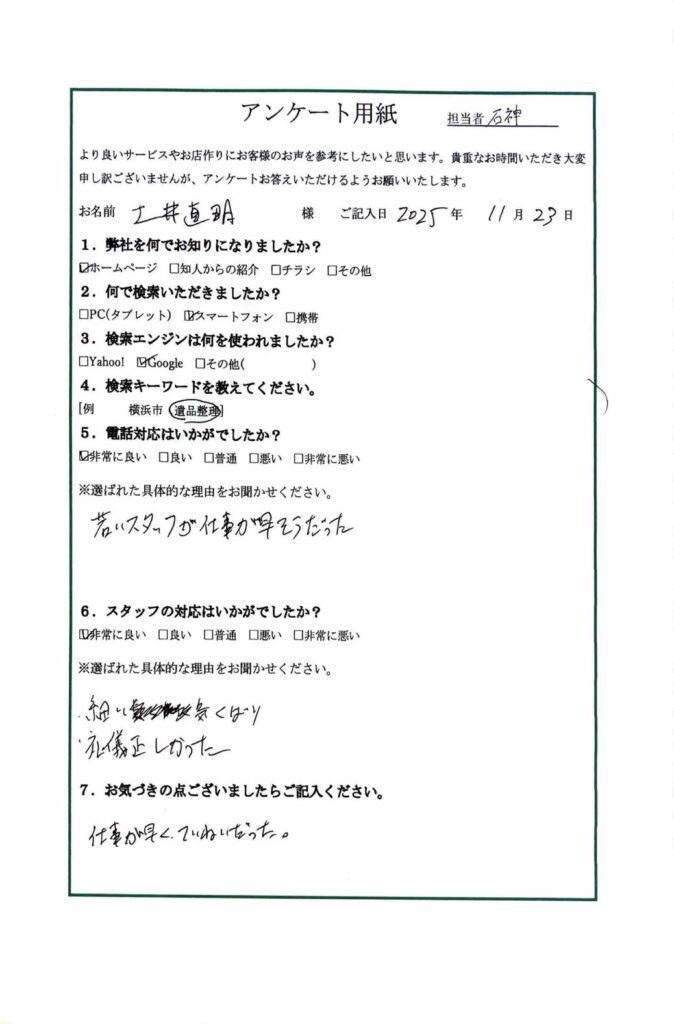 アンケート用紙
担当者 石神
より良いサービスやお店作りにお客様のお声を参考にしたいと思います。貴重なお時間いただき大変
申し訳ございませんが、アンケートお答えいただけるようお願いいたします。
お名前 土井直明 様 ご記入日 2025 年 11 月 23 日
1．弊社を何でお知りになりましたか？
☑ホームページ □知人からの紹介 □チラシ □その他
2．何で検索いただきましたか？
□PC(タブレット) ☑スマートフォン □携帯
3．検索エンジンは何を使われましたか？
□Yahoo! ☑Google □その他( )
4．検索キーワードを教えてください。
[例 横浜市 遺品整理]
5．電話対応はいかがでしたか？
☑非常に良い □良い □普通 □悪い □非常に悪い
※選ばれた具体的な理由をお聞かせください。
若いスタッフが仕事が早そうだった
6．スタッフの対応はいかがでしたか？
☑非常に良い □良い □普通 □悪い □非常に悪い
※選ばれた具体的な理由をお聞かせください。
・細い 気くばり
・礼儀正しかった
7．お気づきの点ございましたらご記入ください。
仕事が早く、ていねいだった。